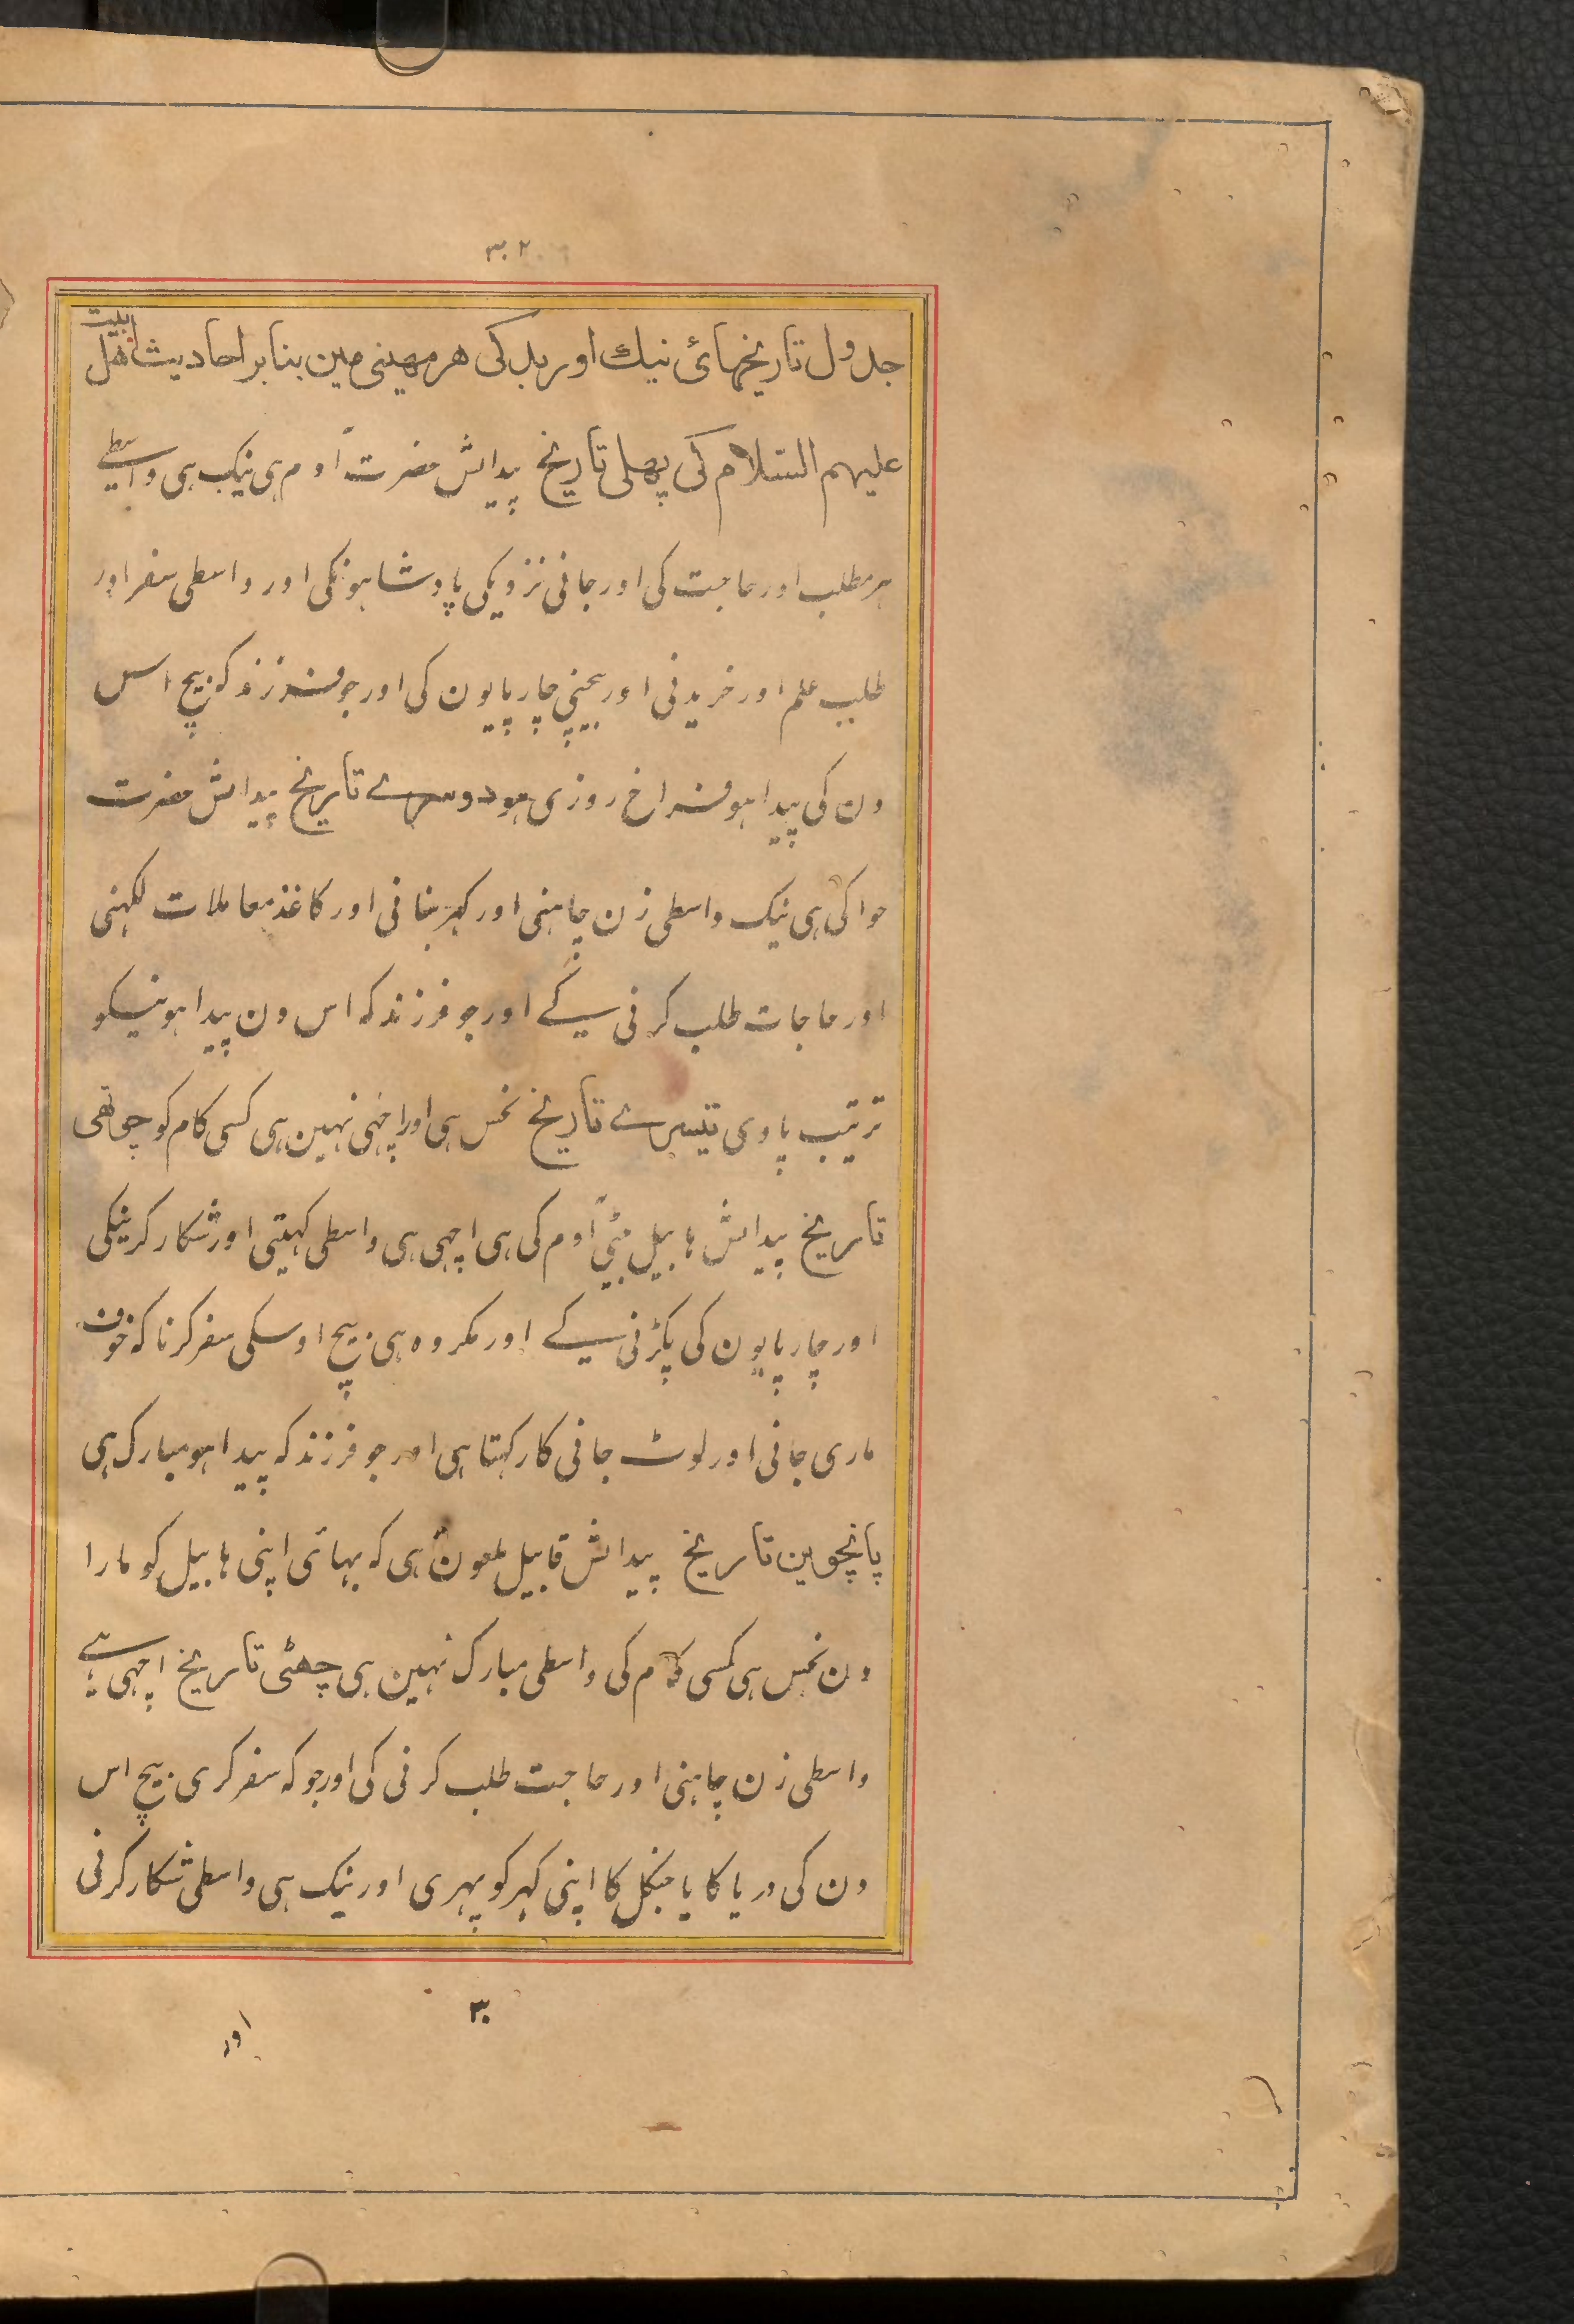 ۳۰۲
جدول تاریخہائ نیك اور بد کی ھر مھینی مین بنابر احادیث اھل بیت
علیہم السّلام کی پھلی تاریخ پیدایش حضرت آدم ہی نیک ہی واسطے
ہر مطلب اور حاجت کی اور جانی نزدیکی پادشاہونکی اور واسطی سفر اور
طلب علم اور خریدنی اور بیچنی چارپایون کی اور جو فرزند کہ بیچ اس
دن کی پیدا ہو فراخ روزی ہو دوسرے تاریخ پیدایش حضرت
حوا کی ہی نیک واسطی زن چاہنی اور کہر بنانی اور کاغذ معاملات لکہنی
اور حاجات طلب کرنی کے اور جو فرزند کہ اس دن پیدا ہو نیکو
ترتیب پاوی تیسرے تاریخ نحس ہی اور اچہی نہین ہی کسی کام کو چوتھی
تاریخ پیدایش ہابیل بیٹی آدم کی ہی اچہی ہی واسطی کہیتی اور شکار کرنیکی
اور چارپایون کی پکڑنی کے اور مکروہ ہی بیچ اوسکی سفر کرنا کہ خوف
ماری جانی اور لوٹ جانی کا رکہتا ہی اور جو فرزند کہ پیدا ہو مبارک ہی
پانچوین تاریخ پیدایش قابیل ملعون ہی کہ بہائی اپنی ہابیل کو مارا
دن نحس ہی کسی کام کی واسطی مبارک نہین ہی چھٹی تاریخ اچہی ہے
واسطی زن چاہنی اور حاجت طلب کرنی کی اور جو کہ سفر کری بیچ اس
دن کی دریا کا یا جنکل کا اپنی کہر کو پہری اور نیک ہی واسطی شکار کرنی
۳۰
اور